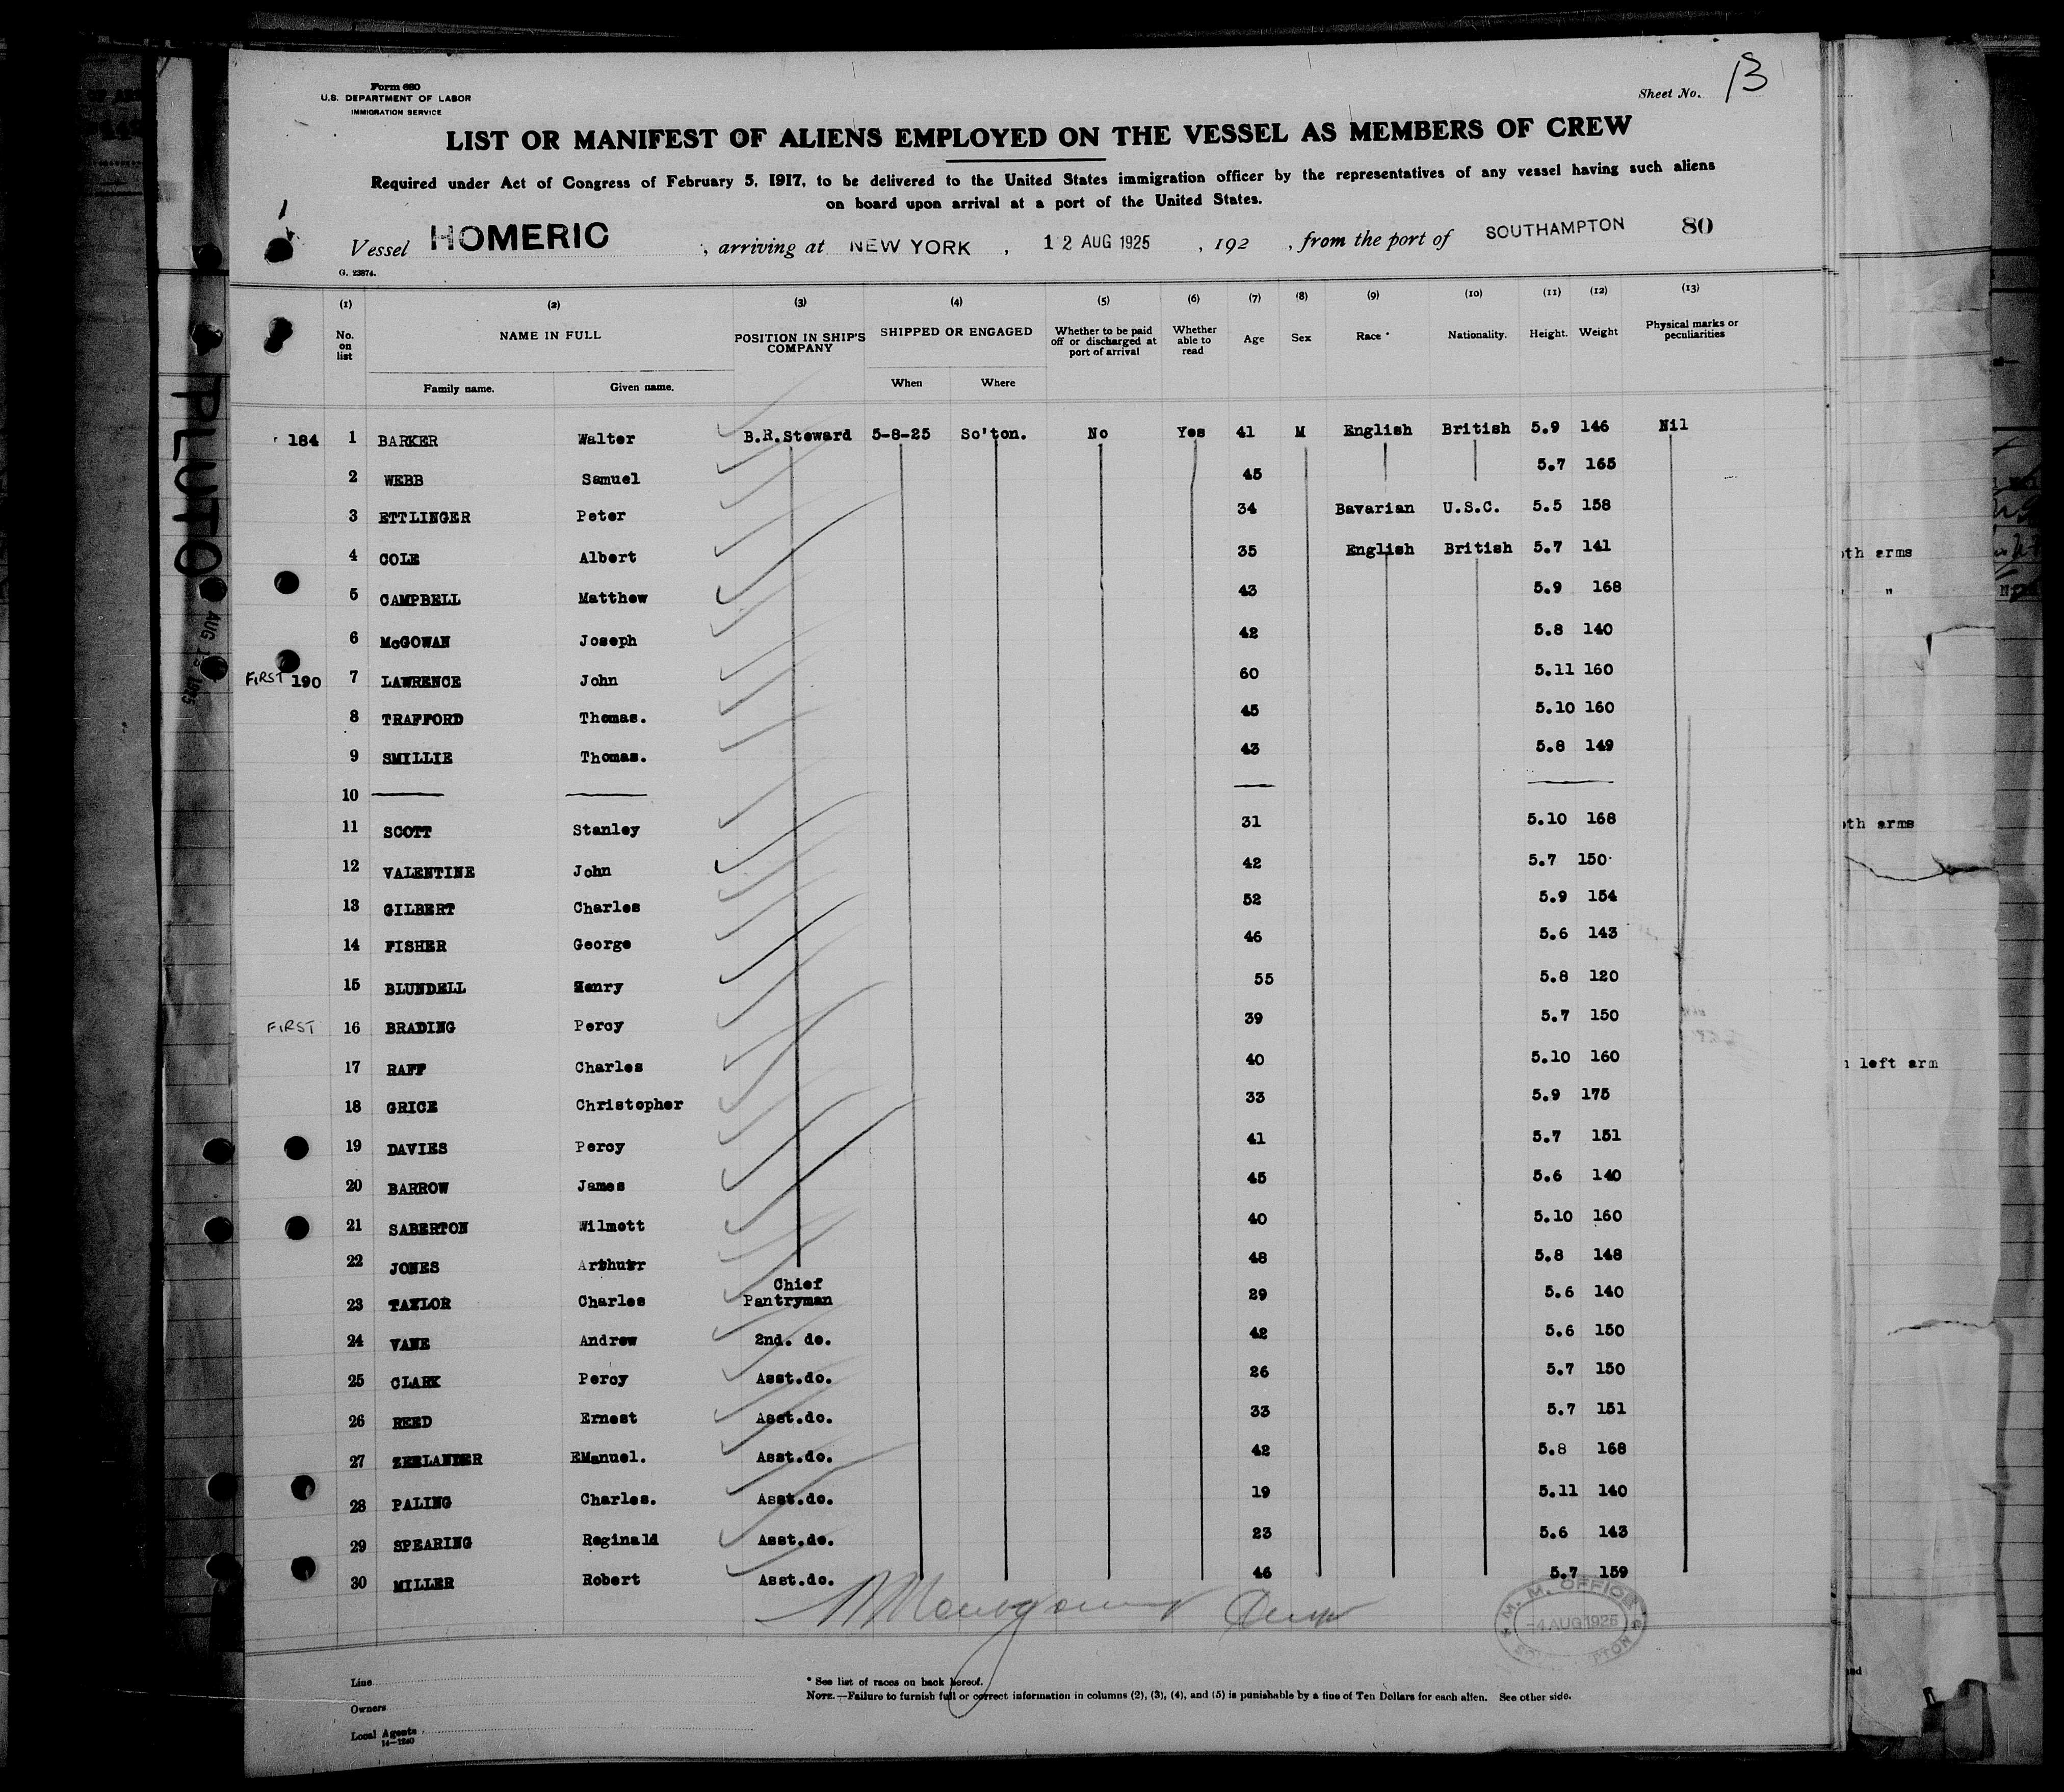 Form 680
U.S. DEPARTMENT OF LABOR
IMMIGRATION SERVICE
Sheet No. 13
LIST OR MANIFEST OF ALIENS EMPLOYED ON THE VESSEL AS MEMBERS OF CREW
Required under Act of Congress of February 5, 1917, to be delivered to the United States immigration officer by the representatives of any vessel having such aliens
on board upon arrival at a port of the United States.
Vessel HOMERIC, arriving at NEW YORK, 12 AUG 1925, 192 , from the port of SOUTHAMPTON 80
G. 23874.
(1) (2) (3) (4) (5) (6) (7) (8) (9) (10) (11) (12) (13)
No. on list NAME IN FULL POSITION IN SHIP'S COMPANY SHIPPED OR ENGAGED Whether to be paid off or discharged at port of arrival Whether able to read Age Sex Race * Nationality. Height. Weight Physical marks or peculiarities
Family name. Given name. When Where
184 1 BARKER Walter B.R.Steward 5-8-25 So'ton. No Yes 41 M English British 5.9 146 Nil
2 WEBB Samuel 45 5.7 165
3 ETTLINGER Peter 34 Bavarian U.S.C. 5.5 158
4 COLE Albert 35 English British 5.7 141
5 CAMPBELL Matthew 43 5.9 168
6 McGOWAN Joseph 42 5.8 140
FIRST 190 7 LAWRENCE John 60 5.11 160
8 TRAFFORD Thomas. 45 5.10 160
9 SMILLIE Thomas. 43 5.8 149
10
11 SCOTT Stanley 31 5.10 168
12 VALENTINE John 42 5.7 150
13 GILBERT Charles 52 5.9 154
14 FISHER George 46 5.6 143
15 BLUNDELL Henry 55 5.8 120
FIRST 16 BRADING Percy 39 5.7 150
17 RAFF Charles 40 5.10 160
18 GRICE Christopher 33 5.9 175
19 DAVIES Percy 41 5.7 151
20 BARROW James 45 5.6 140
21 SABERTON Wilmott 40 5.10 160
22 JONES Arthurr 48 5.8 148
23 TAYLOR Charles Chief Pantryman 29 5.6 140
24 VANE Andrew 2nd. do. 42 5.6 150
25 CLARK Percy Asst.do. 26 5.7 150
26 REED Ernest Asst.do. 33 5.7 151
27 ZEELANDER EManuel. Asst.do. 42 5.8 168
28 PALING Charles. Asst.do. 19 5.11 140
29 SPEARING Reginald Asst.do. 23 5.6 143
30 MILLER Robert Asst.do. 46 5.7 159
M. M. OFFICE
-4 AUG 1925
Line
Owners
Local Agents
14-1240
* See list of races on back hereof.
NOTE.—Failure to furnish full or correct information in columns (2), (3), (4), and (5) is punishable by a fine of Ten Dollars for each alien. See other side.
PLUTO
AUG 1925
oth arms
"
oth arms
left arm